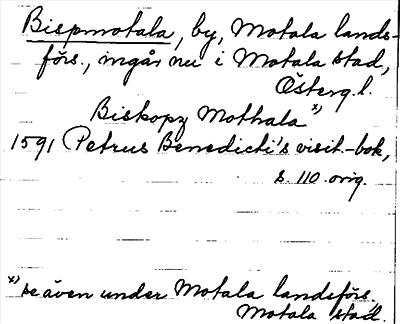 Bispmotala, by, Motala lands-
förs., ingår nu i Motala stad,
Österg. l.
Biskopz Mothala x)
1591 Petrus Benedicti's visit.-bok,
s. 110. orig.
x) se även under Motala landsförs.,
Motala stad.